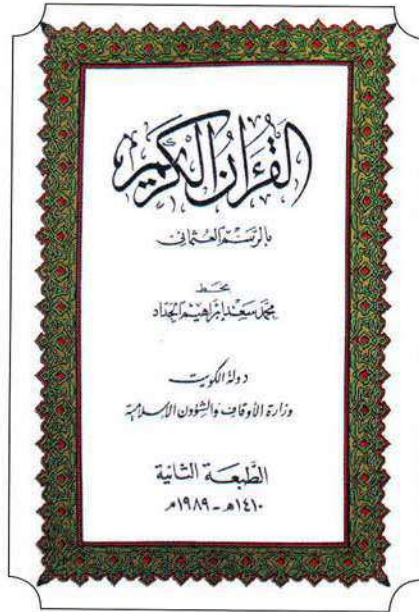 القرءان الكريم
بالرسم العثماني
بخط
محمد سعد إبراهيم الحداد
دولة الكويت
وزارة الأوقاف والشؤون الإسلامية
الطبعة الثانية
١٤١٠هـ - ١٩٨٩م